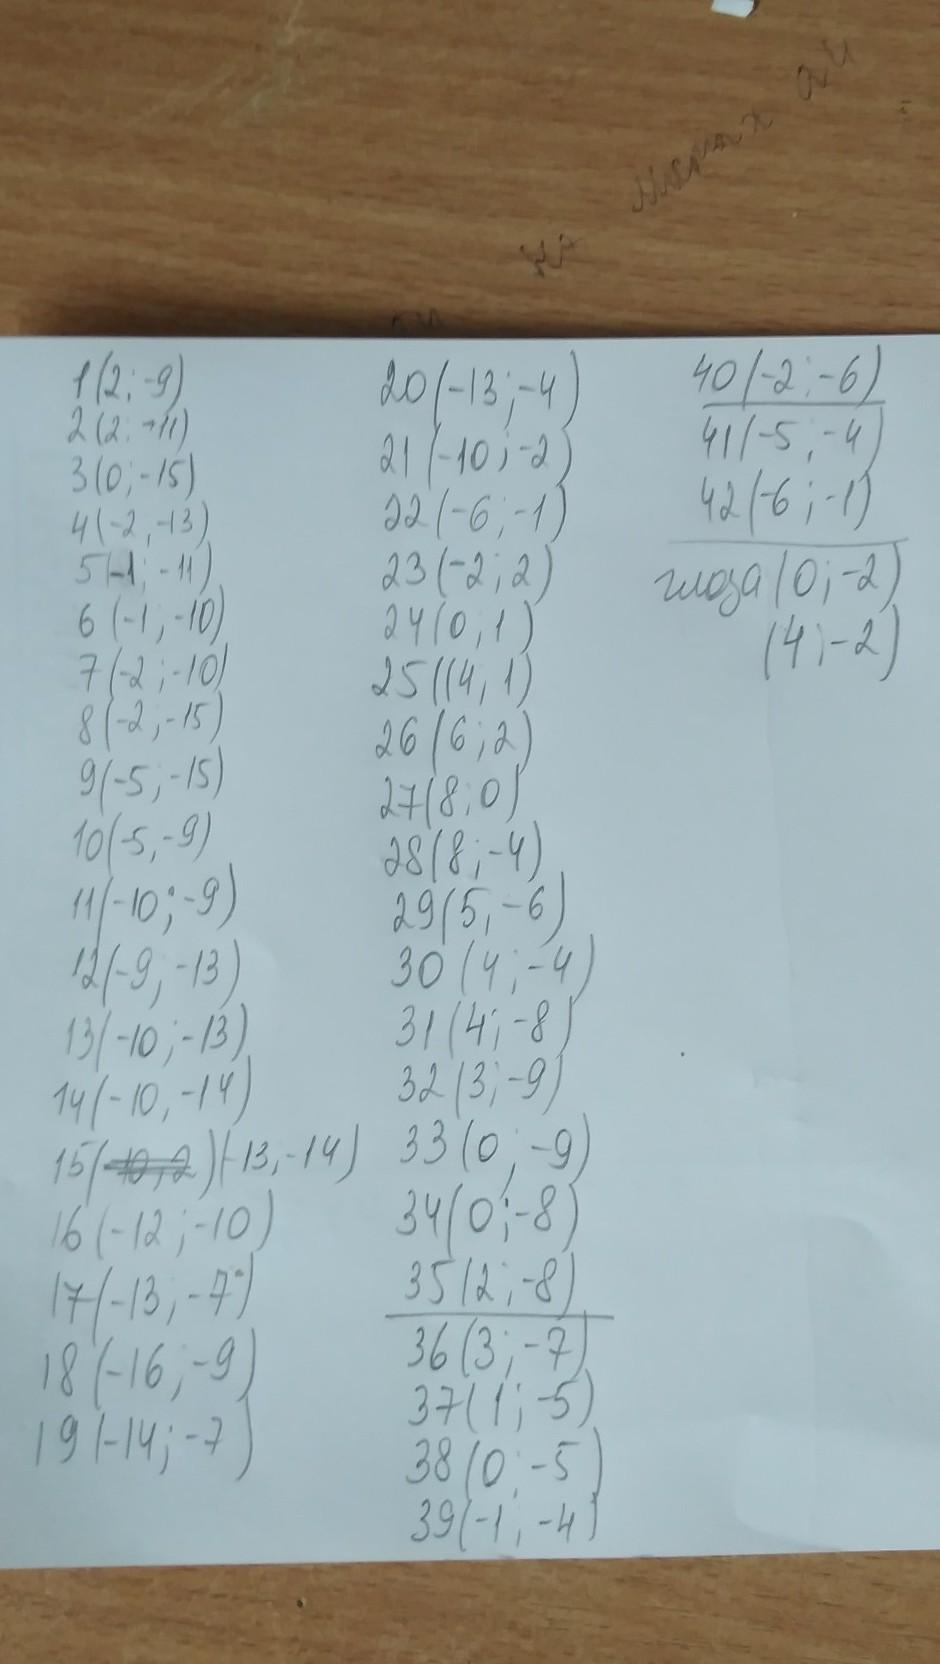 1(2; -9)
2(2; -11)
3(0; -15)
4(-2, -13)
5(-1; -11)
6(-1; -10)
7(-2; -10)
8(-2; -15)
9(-5; -15)
10(-5, -9)
11(-10; -9)
12(-9; -13)
13(-10; -13)
14(-10, -14)
15(10,2)(-13, -14)
16(-12; -10)
17(-13; -7)
18(-16; -9)
19(-14; -7)
20(-13; -4)
21(-10; -2)
22(-6; -1)
23(-2; 2)
24(0; 1)
25((4; 1)
26(6; 2)
27(8; 0)
28(8; -4)
29(5, -6)
30(4; -4)
31(4; -8)
32(3; -9)
33(0; -9)
34(0; -8)
35(2; -8)
36(3; -7)
37(1; -5)
38(0; -5)
39(-1; -4)
40(-2; -6)
41(-5; -4)
42(-6; -1)
глаза (0; -2)
(4; -2)